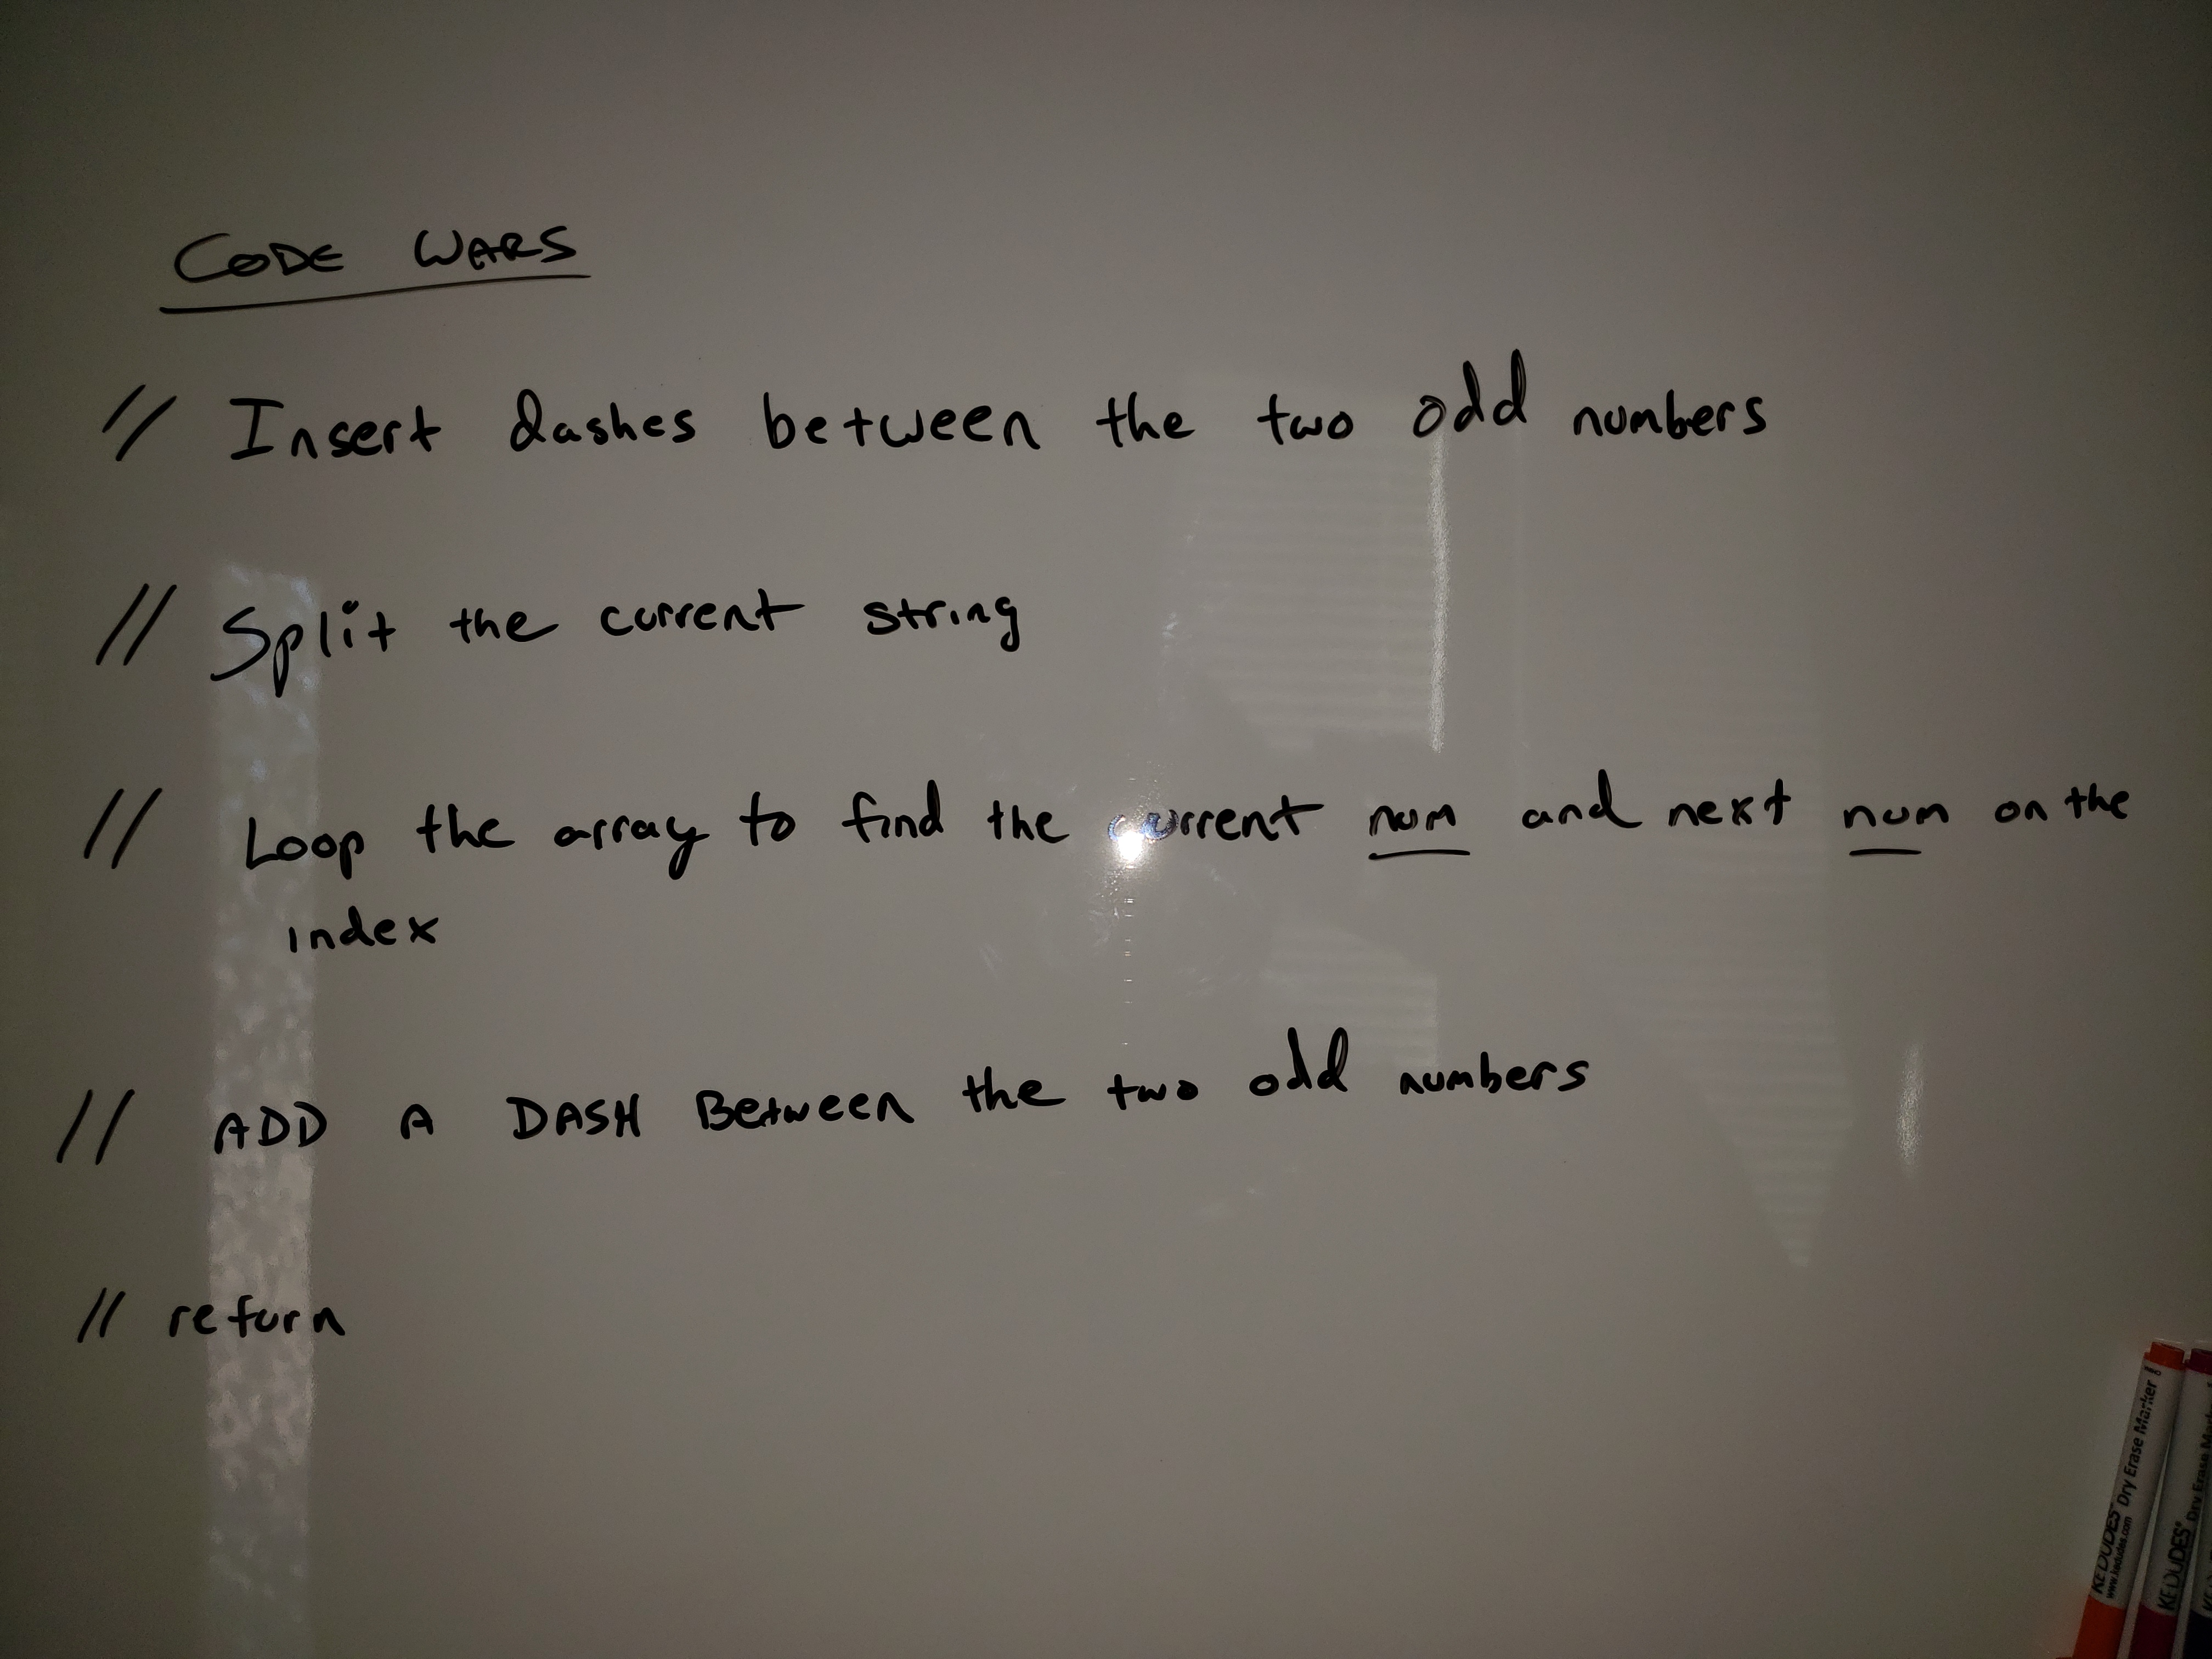 CODE WARS
// Insert dashes between the two odd numbers
// Split the current string
// Loop the array to find the current num and next num on the
index
// ADD A DASH Between the two odd numbers
// return
KEDUDES® Dry Erase Marker
www.kedudes.com
KEDUDES® Dry Erase